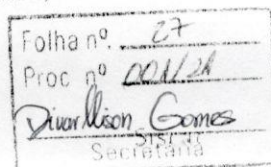 Folha nº 27
Proc nº 001/21
Divarllison Gomes
Secretaria